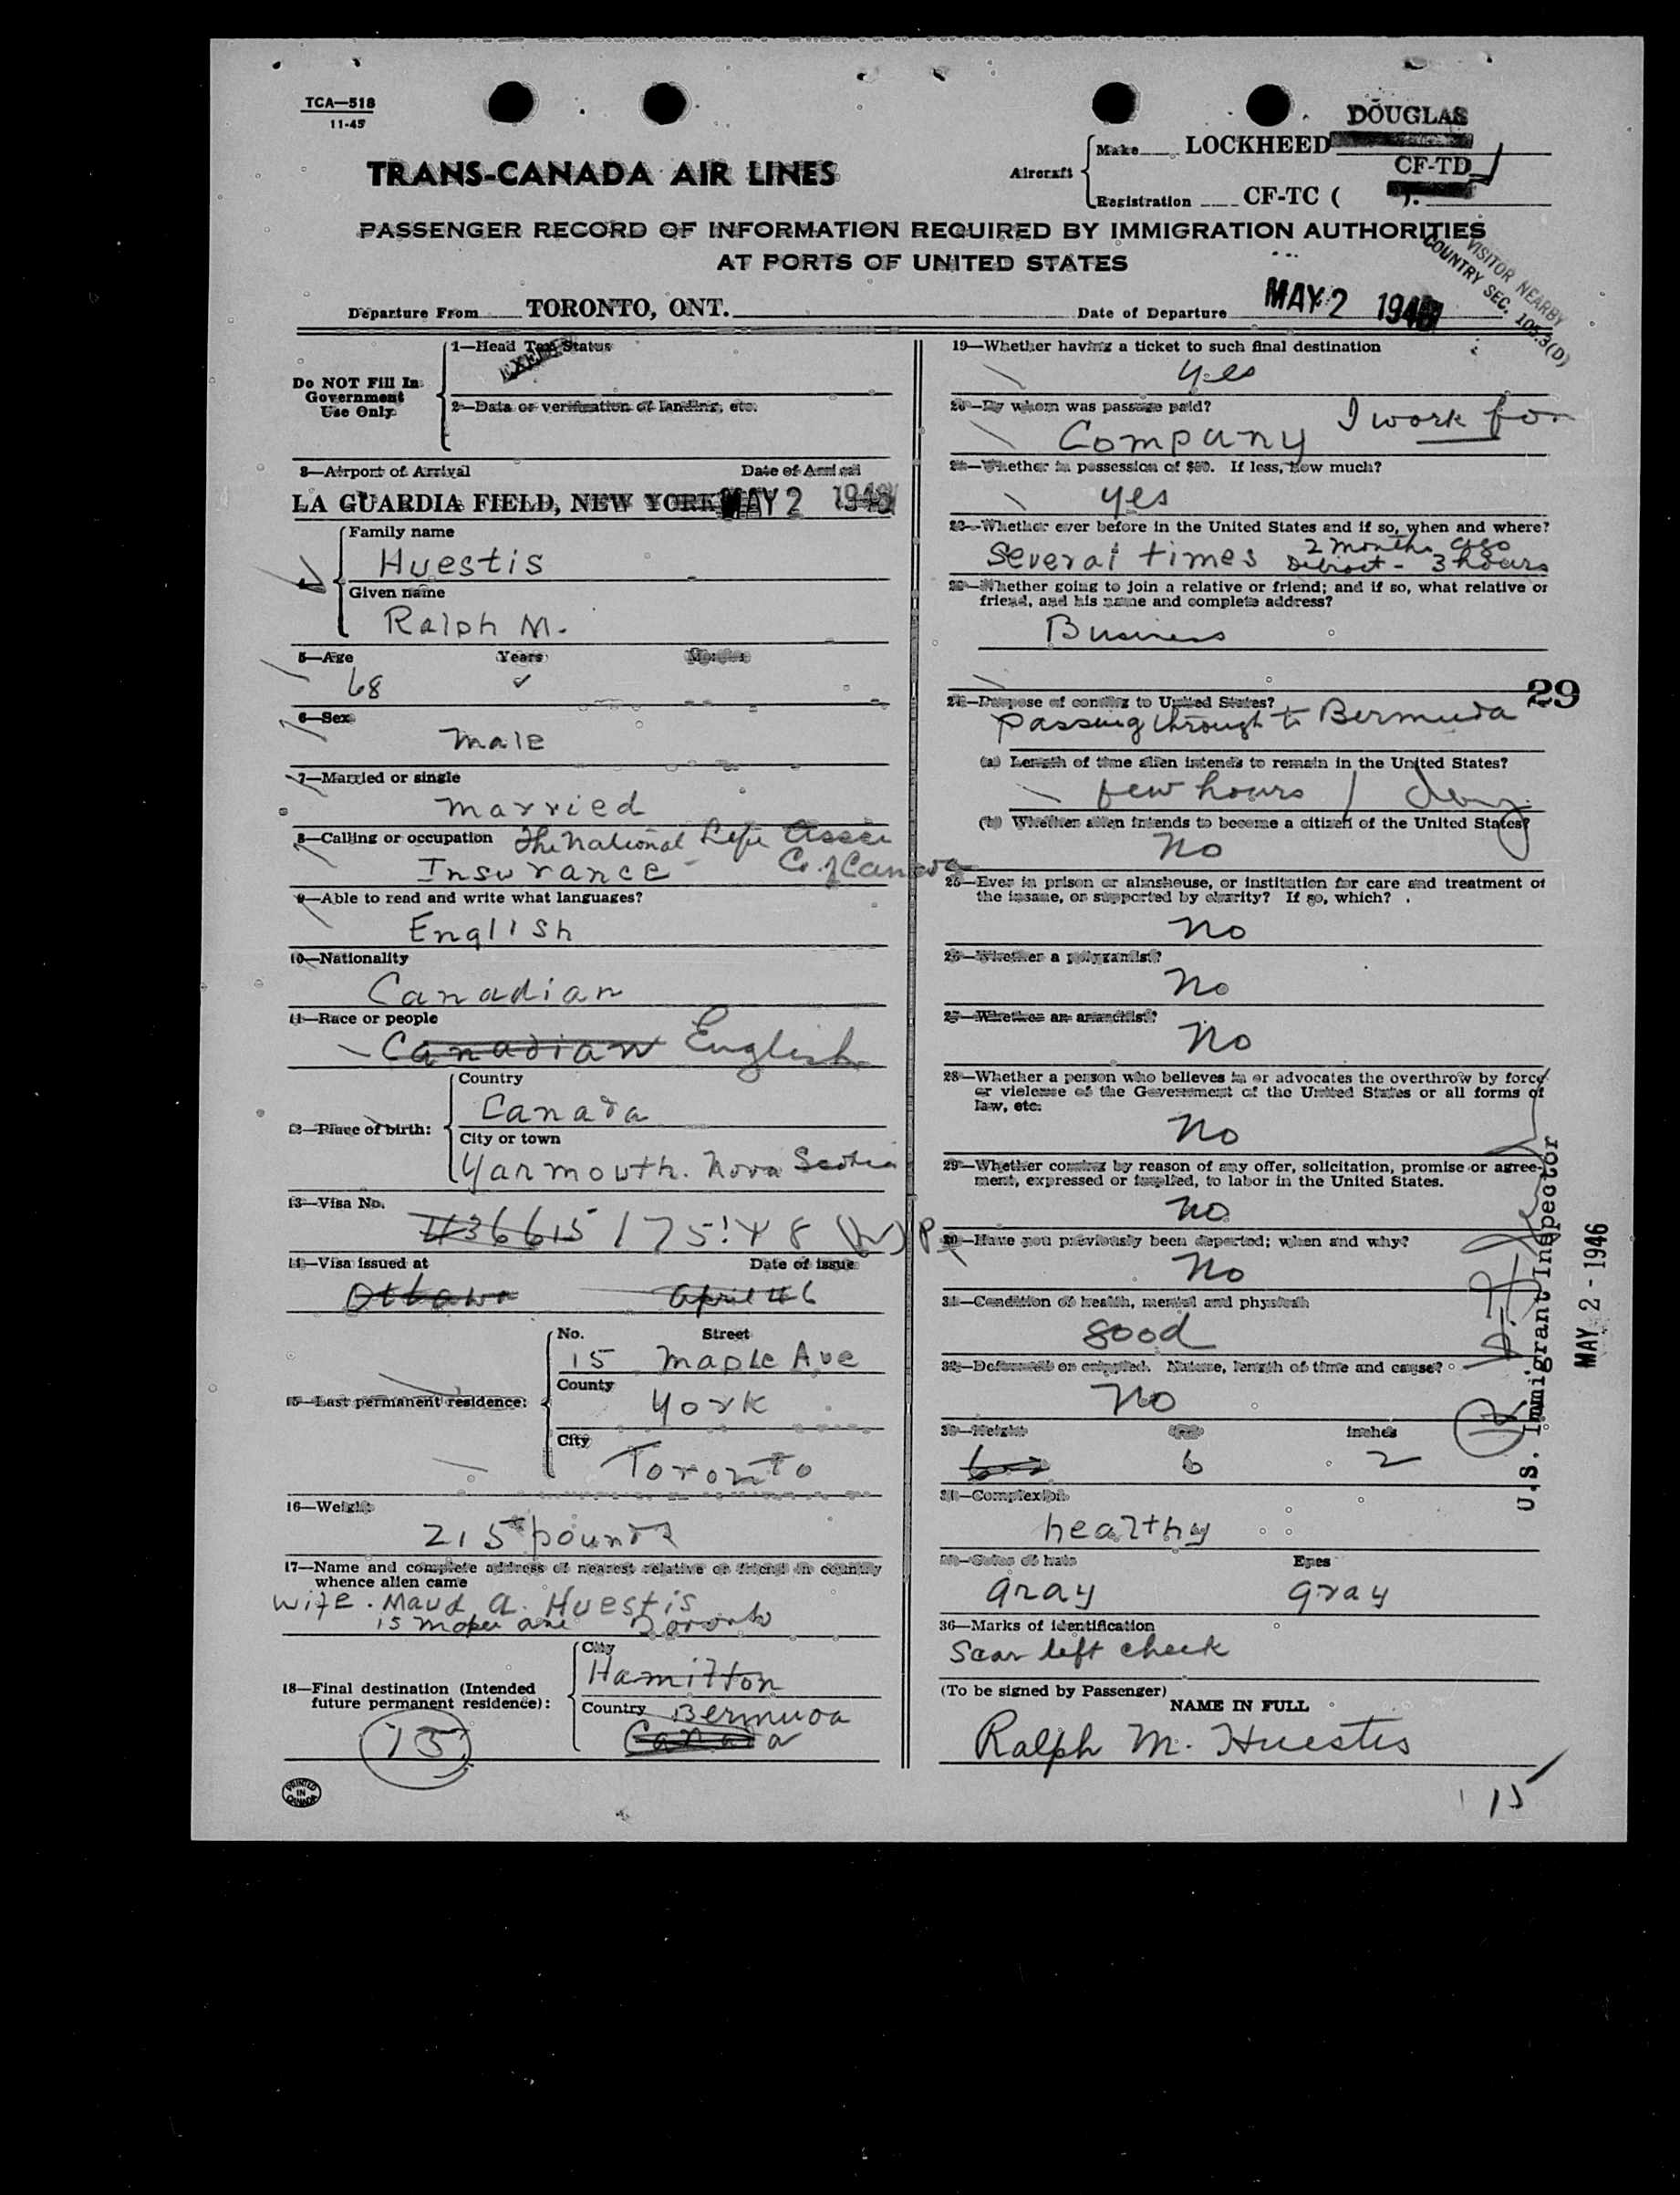 TCA—518
11-45
DOUGLAS
TRANS-CANADA AIR LINES
Aircraft
Make LOCKHEED
CF-TD
Registration CF-TC ( ).
PASSENGER RECORD OF INFORMATION REQUIRED BY IMMIGRATION AUTHORITIES
AT PORTS OF UNITED STATES
VISITOR NEARBY
COUNTRY SEC. 105.3(D)
Departure From TORONTO, ONT. Date of Departure MAY 2 1946
Do NOT Fill In
Government
Use Only
1—Head Tax Status
EXEMPT
2—Data or verification of landing, etc.
3—Airport of Arrival Date of Arrival
LA GUARDIA FIELD, NEW YORK MAY 2 1946
Family name
Huestis
Given name
Ralph M.
5—Age Years Months
68
6—Sex
male
7—Married or single
married
8—Calling or occupation The National Life Assce
Insurance Co. of Canada
9—Able to read and write what languages?
English
10—Nationality
Canadian
11—Race or people
Canadian English
12—Place of birth:
Country
Canada
City or town
Yarmouth. Nova Scotia
13—Visa No.
14—Visa issued at Date of issue
Ottawa April 46
15—Last permanent residence:
No. Street
15 Maple Ave
County
York
City
Toronto
16—Weight
215 pounds
17—Name and complete address of nearest relative or friend in country
whence alien came
wife. Maud A. Huestis
15 Maple Ave Toronto
18—Final destination (Intended
future permanent residence):
City
Hamilton
Country Bermuda
Canada
15
PRINTED
IN
CANADA
19—Whether having a ticket to such final destination
yes
20—By whom was passage paid?
Company I work for
21—Whether in possession of $50. If less, how much?
yes
22—Whether ever before in the United States and if so, when and where?
Several times 2 months ago
Detroit - 3 hours
23—Whether going to join a relative or friend; and if so, what relative or
friend, and his name and complete address?
Business
29
24—Purpose of coming to United States?
passing through to Bermuda
(a) Length of time alien intends to remain in the United States?
few hours 1 day
(b) Whether alien intends to become a citizen of the United States?
No
25—Ever in prison or almshouse, or institution for care and treatment of
the insane, or supported by charity? If so, which?
no
26—Whether a polygamist?
No
27—Whether an anarchist?
No
28—Whether a person who believes in or advocates the overthrow by force
or violence of the Government of the United States or all forms of
law, etc.
No
29—Whether coming by reason of any offer, solicitation, promise or agree-
ment, expressed or implied, to labor in the United States.
no
30—Have you previously been deported; when and why?
No
31—Condition of health, mental and physical
good
32—Deformed or crippled. Nature, length of time and cause?
No
33—Height feet inches
6 2
34—Complexion
healthy
35—Color of hair Eyes
gray gray
36—Marks of identification
Scar left cheek
(To be signed by Passenger)
NAME IN FULL
Ralph M. Huestis
15
U.S. Immigrant Inspector
MAY 2 - 1946